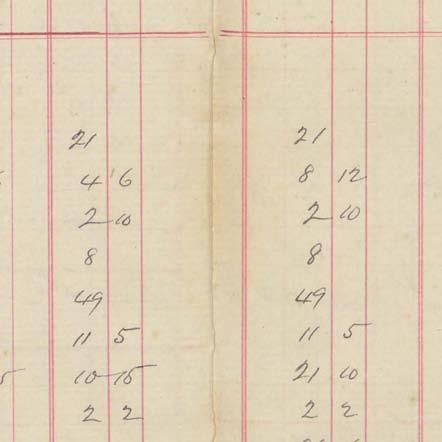 21 21
4 6 8 12
2 10 2 10
8 8
49 49
11 5 11 5
5 10 15 21 10
2 2 2 2